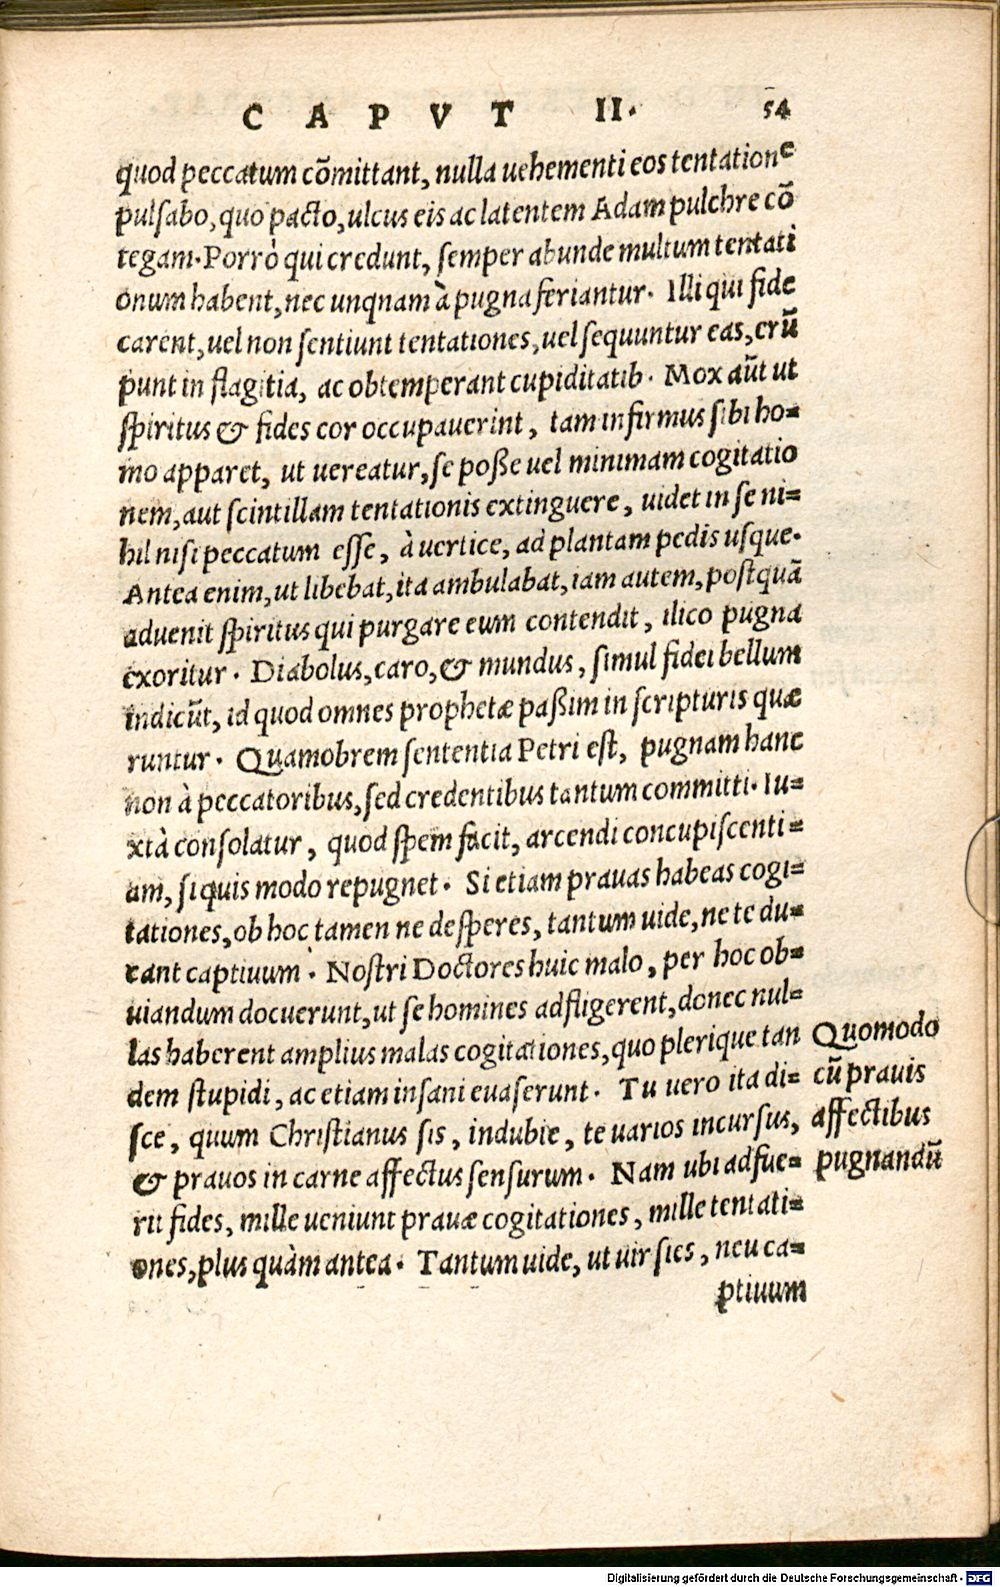 CAPVT II. 54
quod peccatum cõmittant, nulla uehementi eos tentatione
pulsabo, quo pacto, ulcus eis ac latentem Adam pulchre cõ
tegam. Porrò qui credunt, semper abunde multum tentati
onum habent, nec unqnam à pugna feriantur. Illi qui fide
carent, uel non sentiunt tentationes, uel sequuntur eas, erũ
punt in flagitia, ac obtemperant cupiditatib. Mox aũt ut
spiritus & fides cor occupauerint, tam infirmus sibi ho=
mo apparet, ut uereatur, se poße uel minimam cogitatio
nem, aut scintillam tentationis extinguere, uidet in se ni=
hil nisi peccatum esse, à uertice, ad plantam pedis usque.
Antea enim, ut libebat, ita ambulabat, iam autem, postquã
aduenit spiritus qui purgare eum contendit, ilico pugna
exoritur. Diabolus, caro, & mundus, simul fidei bellum
indicũt, id quod omnes prophetæ paßim in scripturis quæ
runtur. Quamobrem sententia Petri est, pugnam hanc
non à peccatoribus, sed credentibus tantum committi. Iu=
xtà consolatur, quod spem facit, arcendi concupiscenti=
am, si quis modo repugnet. Si etiam prauas habeas cogi=
tationes, ob hoc tamen ne desperes, tantum uide, ne te du=
cant captiuum. Nostri Doctores huic malo, per hoc ob=
uiandum docuerunt, ut se homines adfligerent, donec nul=
las haberent amplius malas cogitationes, quo plerique tan
dem stupidi, ac etiam insani euaserunt. Tu uero ita di=
sce, quum Christianus sis, indubie, te uarios incursus,
& prauos in carne affectus sensurum. Nam ubi adfue=
rit fides, mille ueniunt prauæ cogitationes, mille tentati=
ones, plus quàm antea. Tantum uide, ut uir sies, neu ca=
ptiuum
Quomodo
cũ prauis
affectibus
pugnandũ
Digitalisierung gefördert durch die Deutsche Forschungsgemeinschaft - DFG